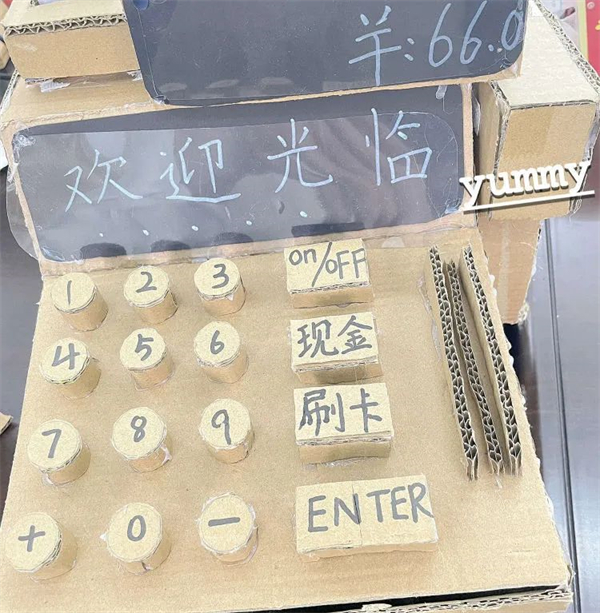 羊:66.0
欢迎光临
. . . . .
yummy
1 2 3 on/OFF
4 5 6 现金
7 8 9 刷卡
+ 0 - ENTER